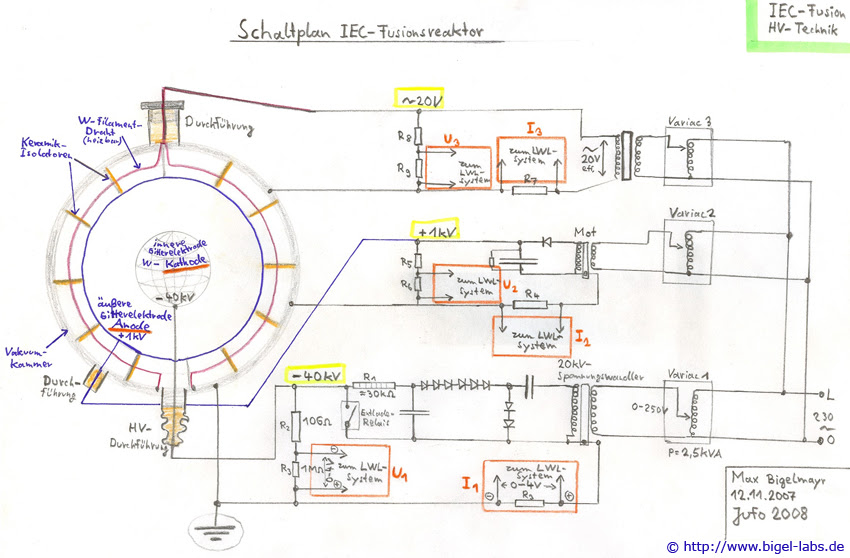 Schaltplan IEC-Fusionsreaktor
IEC-Fusion
HV-Technik
W-Filament-
Draht
(heizbar)
Keramik-
Isolatoren
Durchführung
~20V
R8
R9
U3
zum LWL-
system
I3
zum LWL-
system
R7
~
20V
eff
Variac 3
innere
Gitterelektrode
W-Kathode
-40kV
äußere
Gitterelektrode
Anode
+1kV
Vakuum-
kammer
Durch-
führung
HV-
Durchführung
+1kV
R5
R6
zum LWL-
system
U2
Mot
R4
zum LWL-
system
I2
Variac 2
-40kV
R1
≈30kΩ
R2
10GΩ
R3
1MΩ
zum LWL-
system
U1
20kV-
Spannungswandler
zum LWL-
system
0-4V
I1
Variac 1
0-250V
P=2,5kVA
L
230
~
0
Max Bigelmayr
12.11.2007
Jufo 2008
© http://www.bigel-labs.de